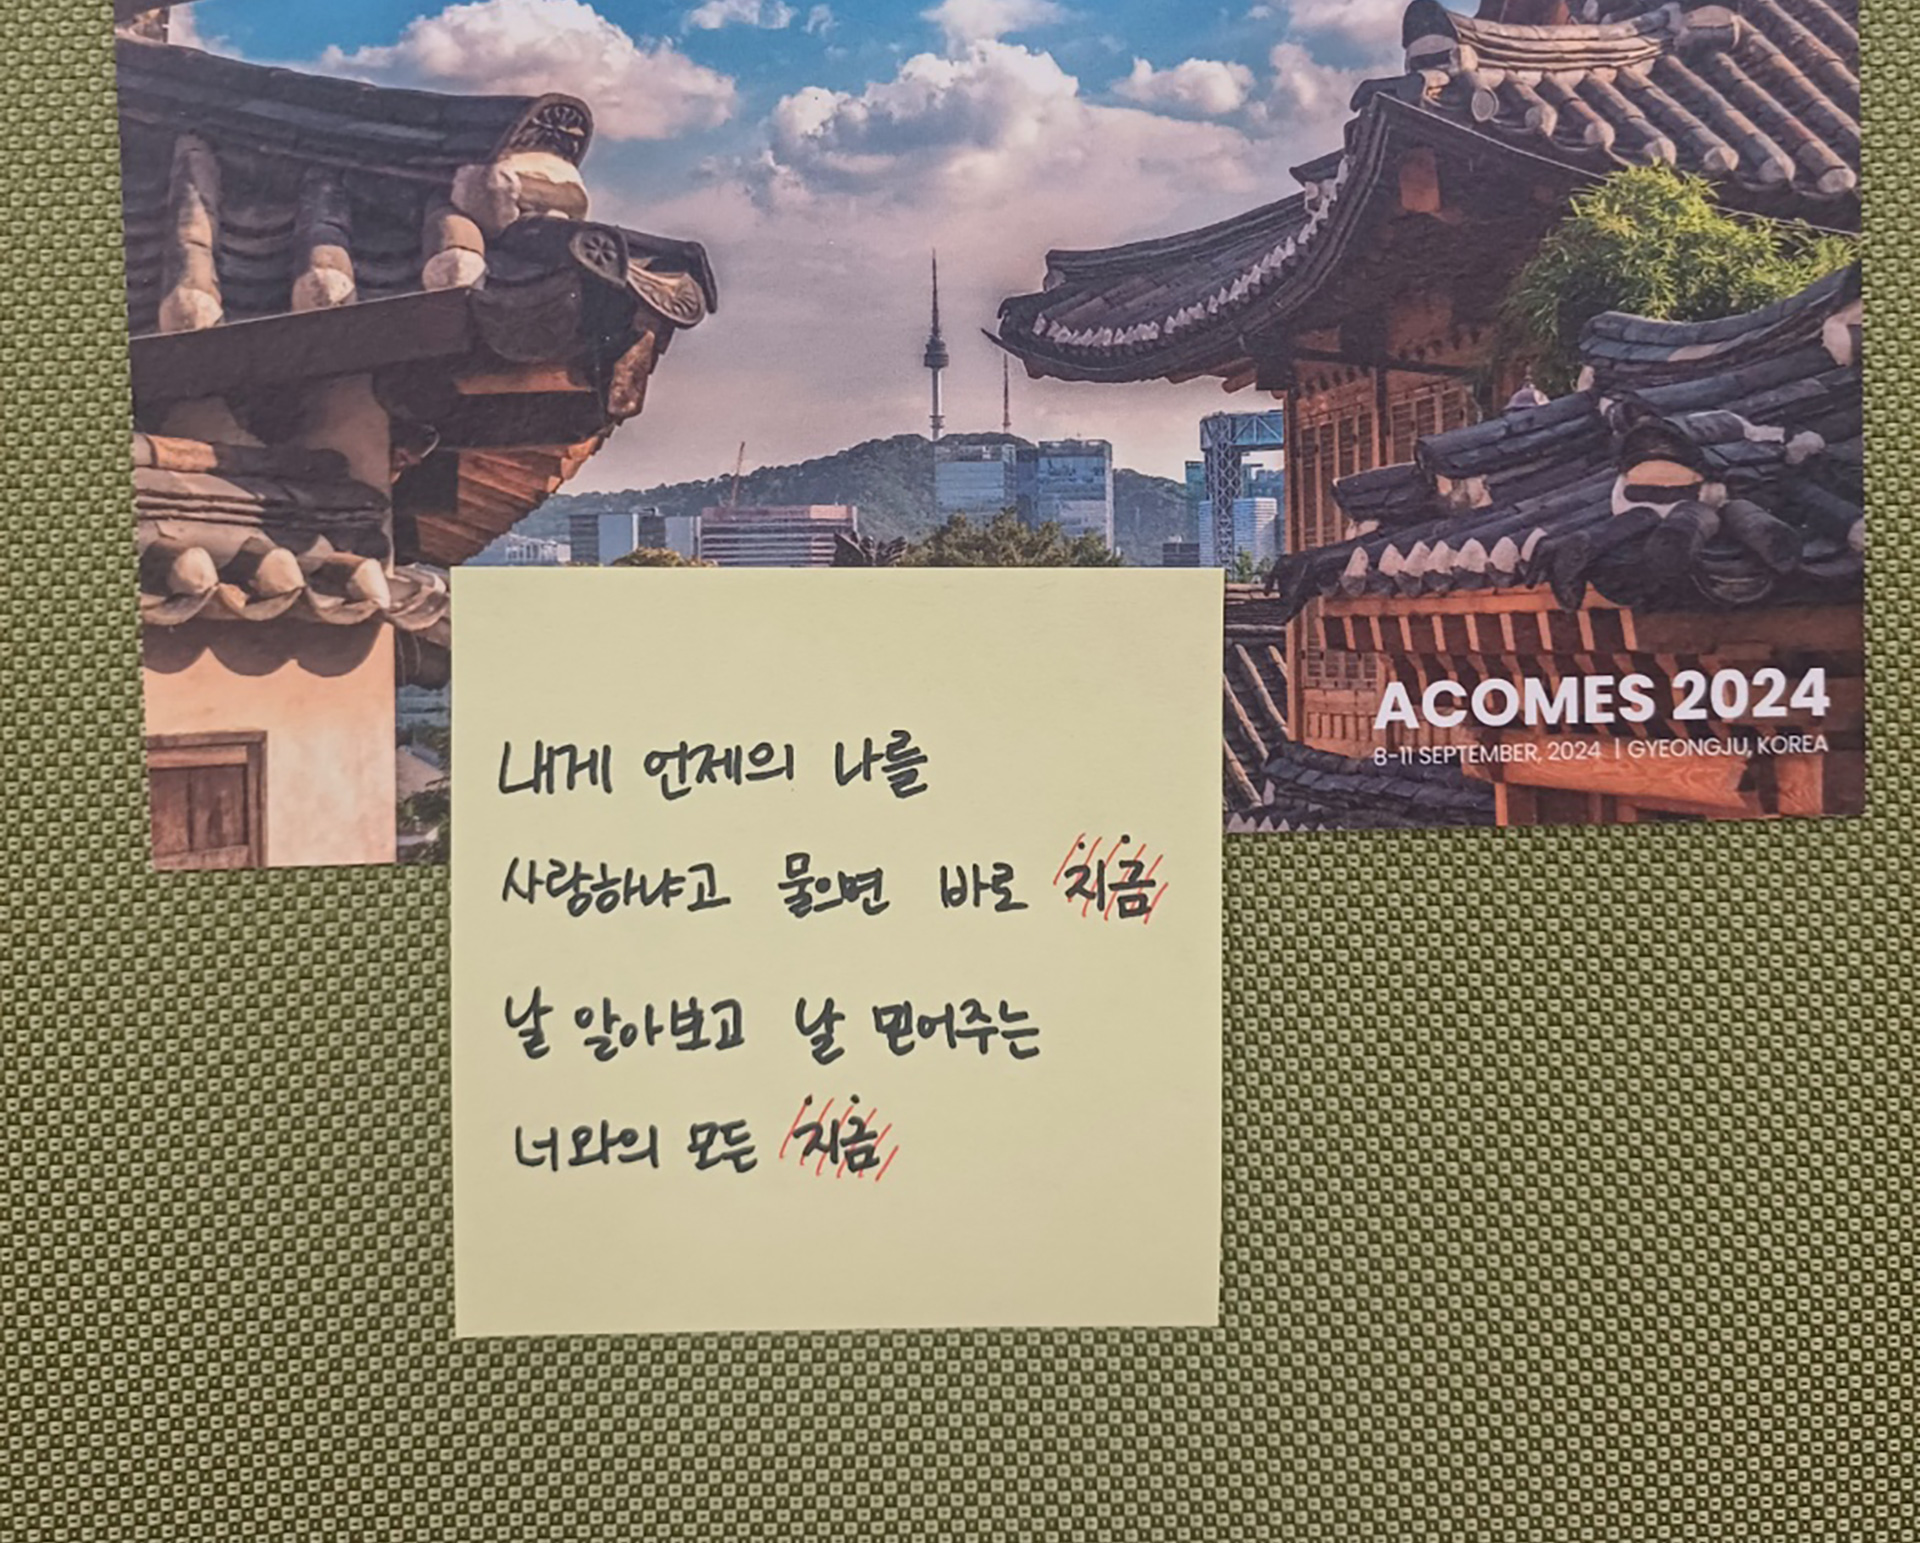 ACOMES 2024
8-11 SEPTEMBER, 2024 | GYEONGJU, KOREA
내게 언제의 나를
사랑하냐고 물으면 바로 지금
날 알아보고 날 믿어주는
너와의 모든 지금